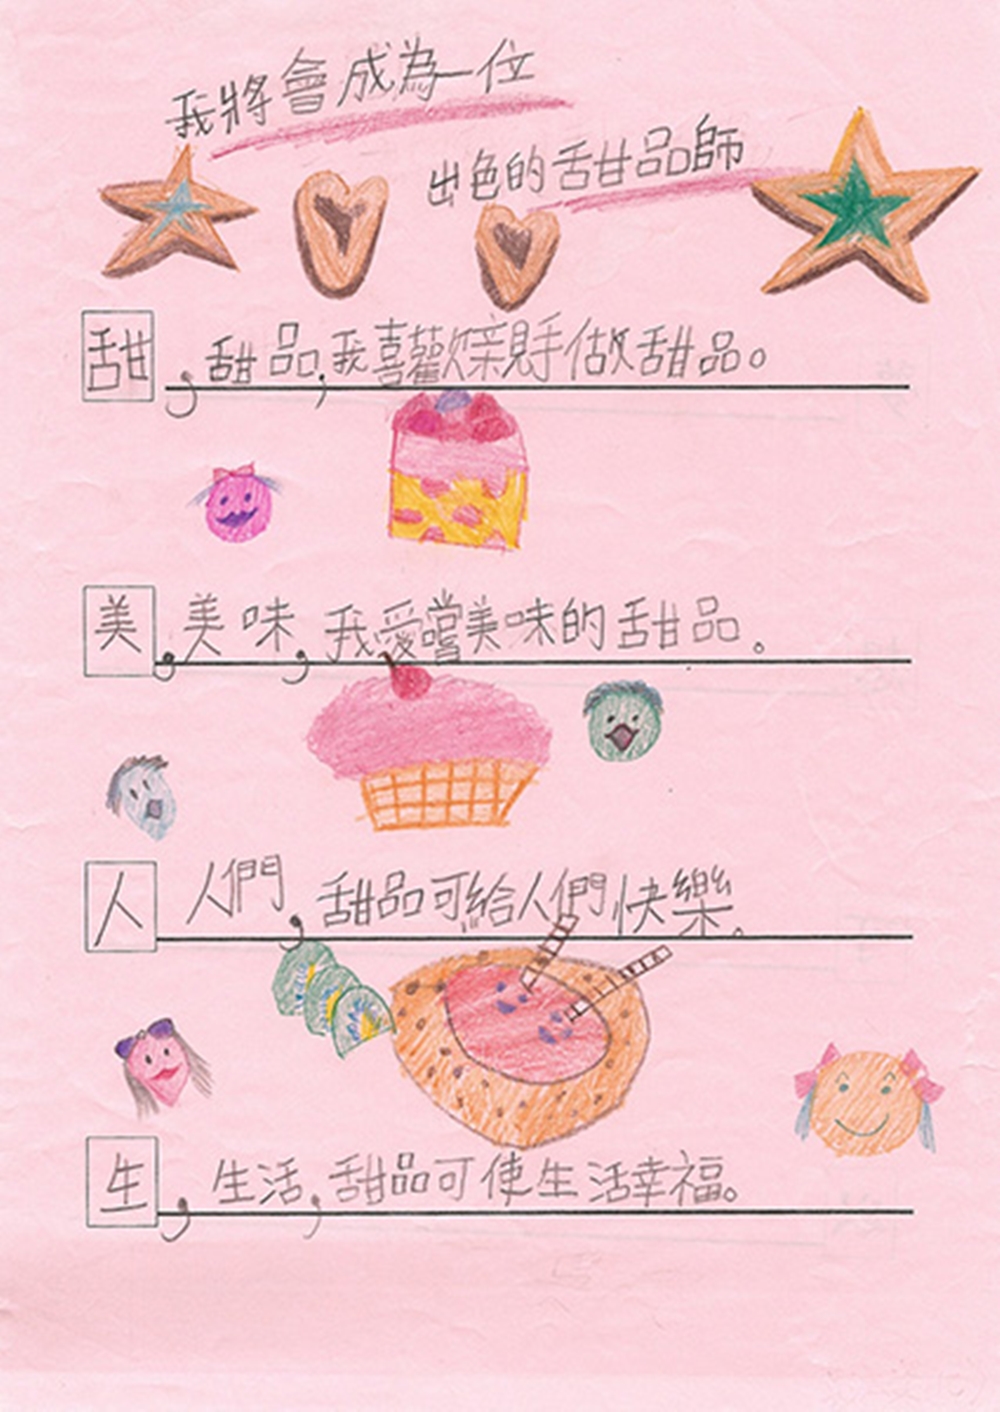 我將會成為一位
出色的甜品師
甜,甜品,我喜歡親手做甜品。
美,美味,我愛嚐美味的甜品。
人 人們,甜品可給人們快樂。
生,生活,甜品可使生活幸福。